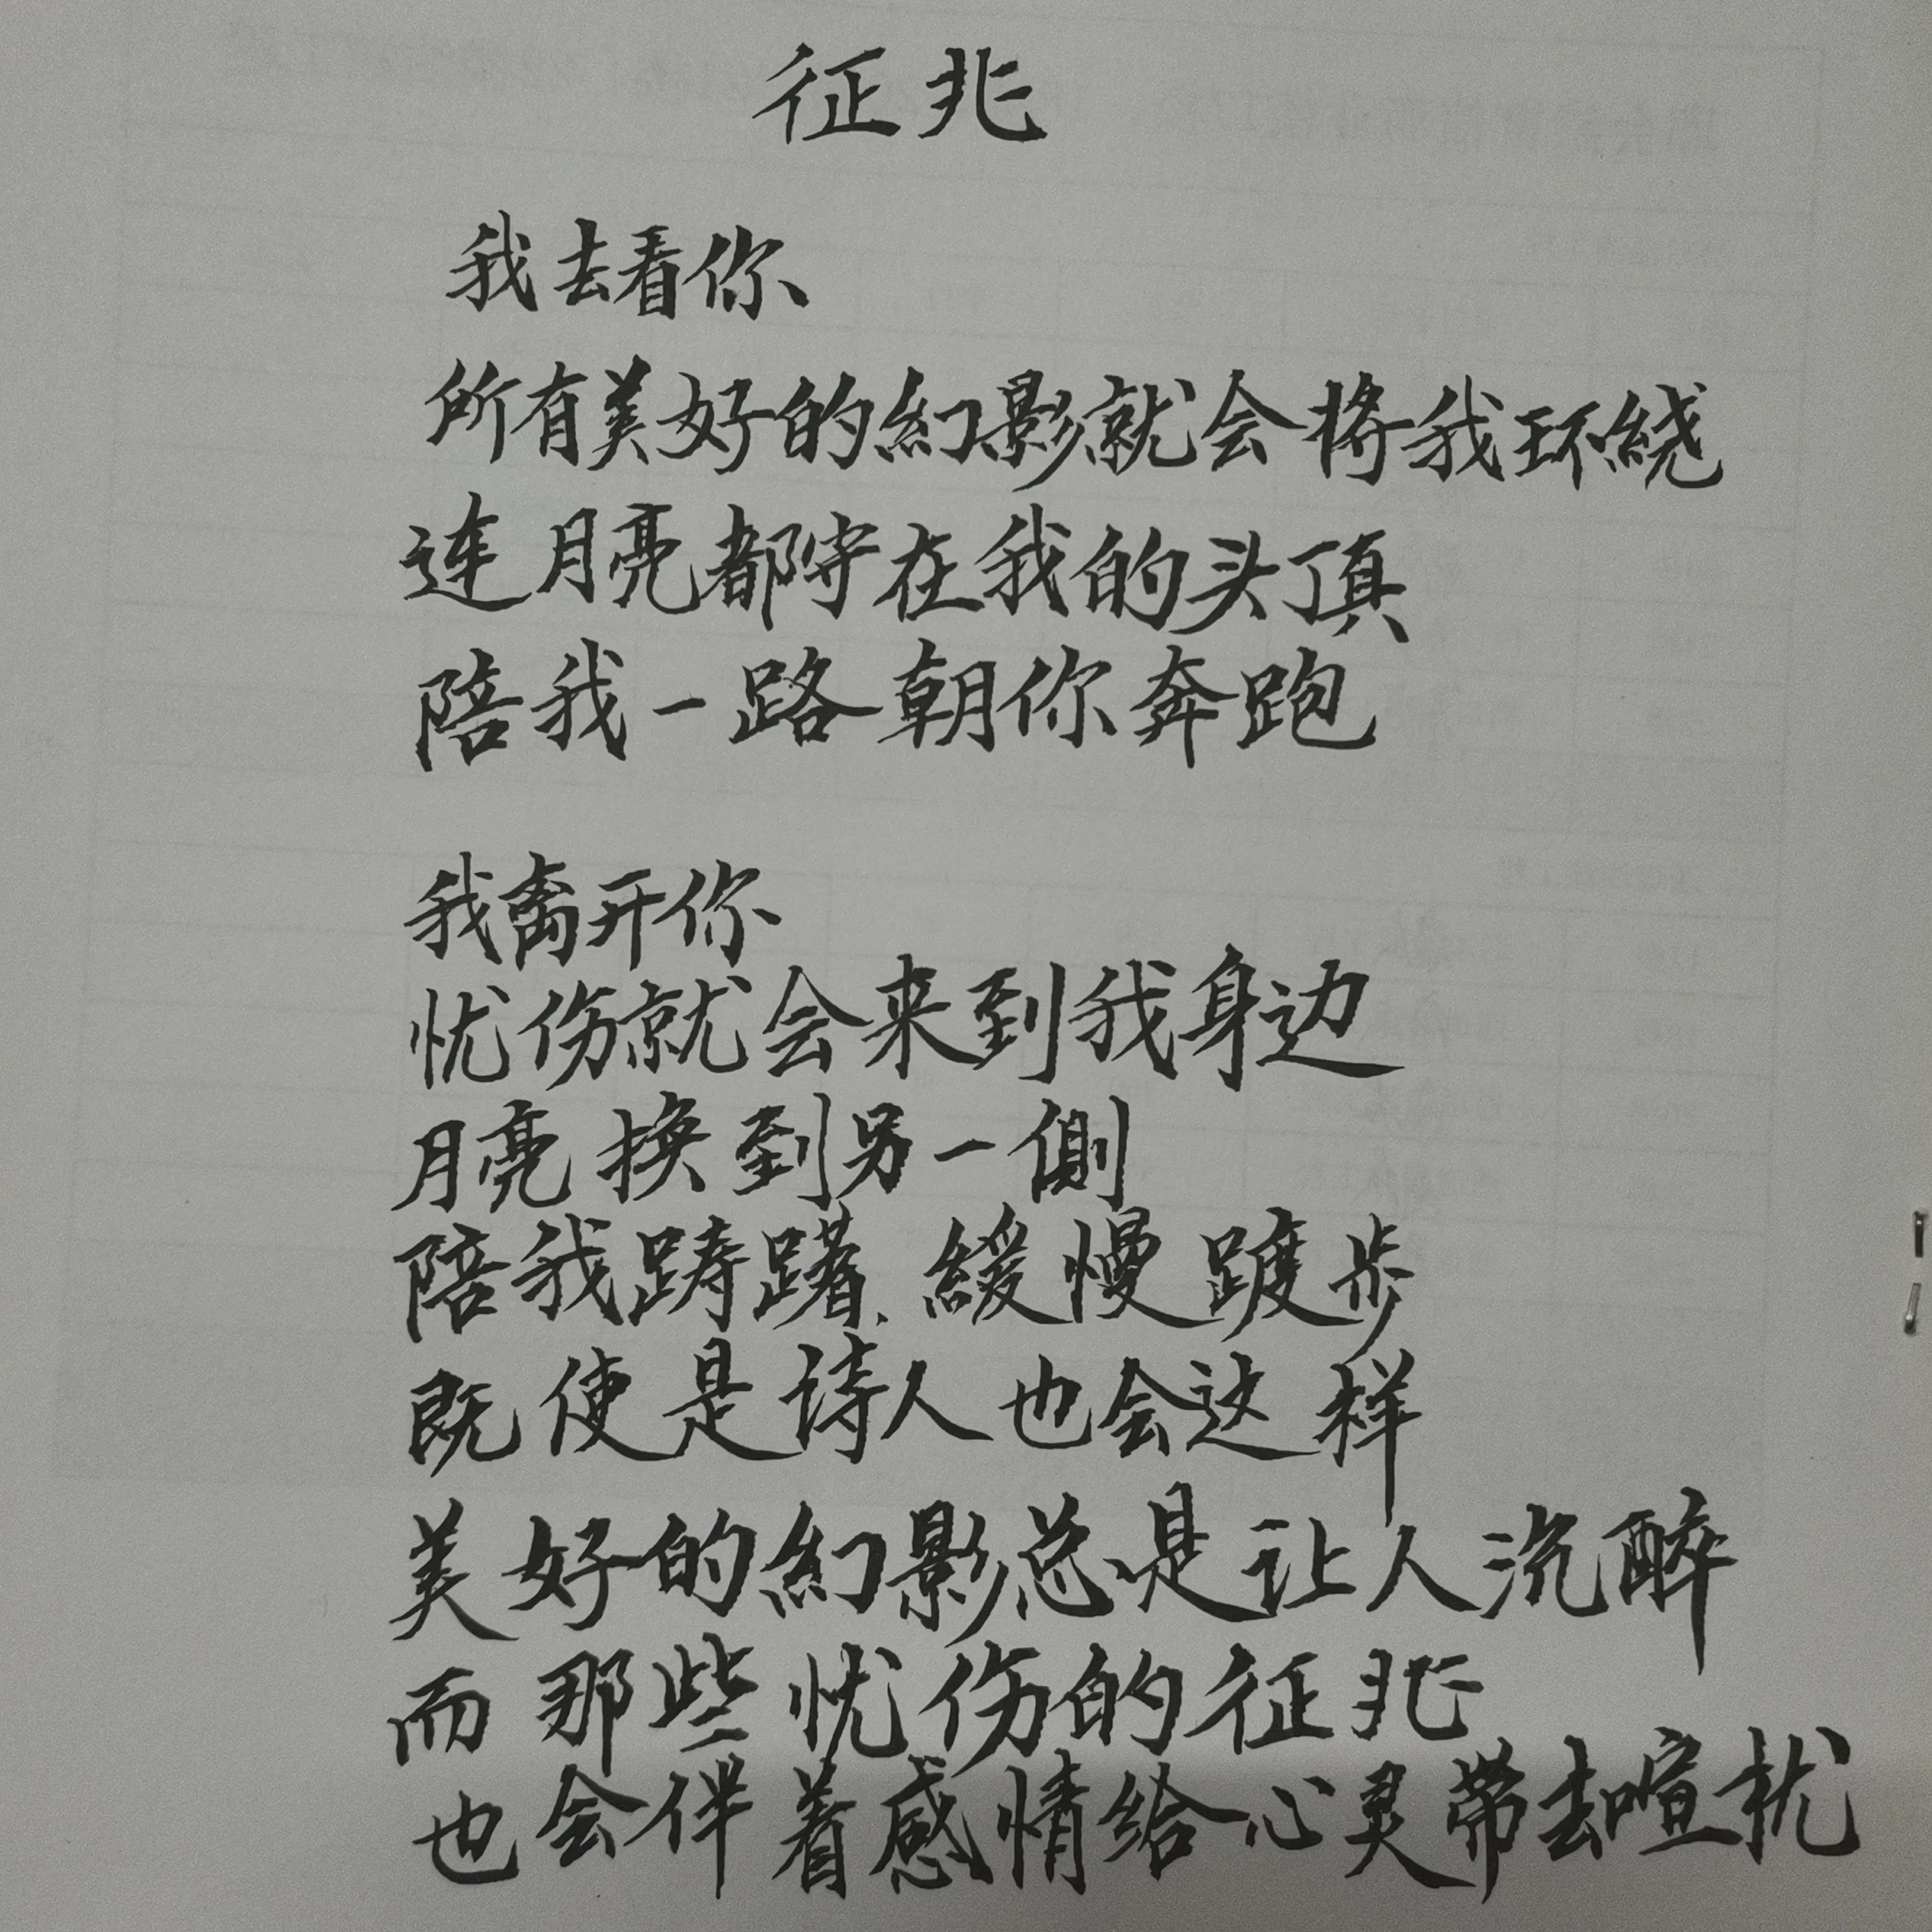 征兆
我去看你
所有美好的幻影就会将我环繞
连月亮都守在我的头顶
陪我一路朝你奔跑
我离开你
忧伤就会来到我身边
月亮换到另一側
陪我踌躇、緩慢踱步
既使是诗人也会这样
美好的幻影总是让人沉醉
而那些忧伤的征兆
也会伴着感情给心灵带去喧扰